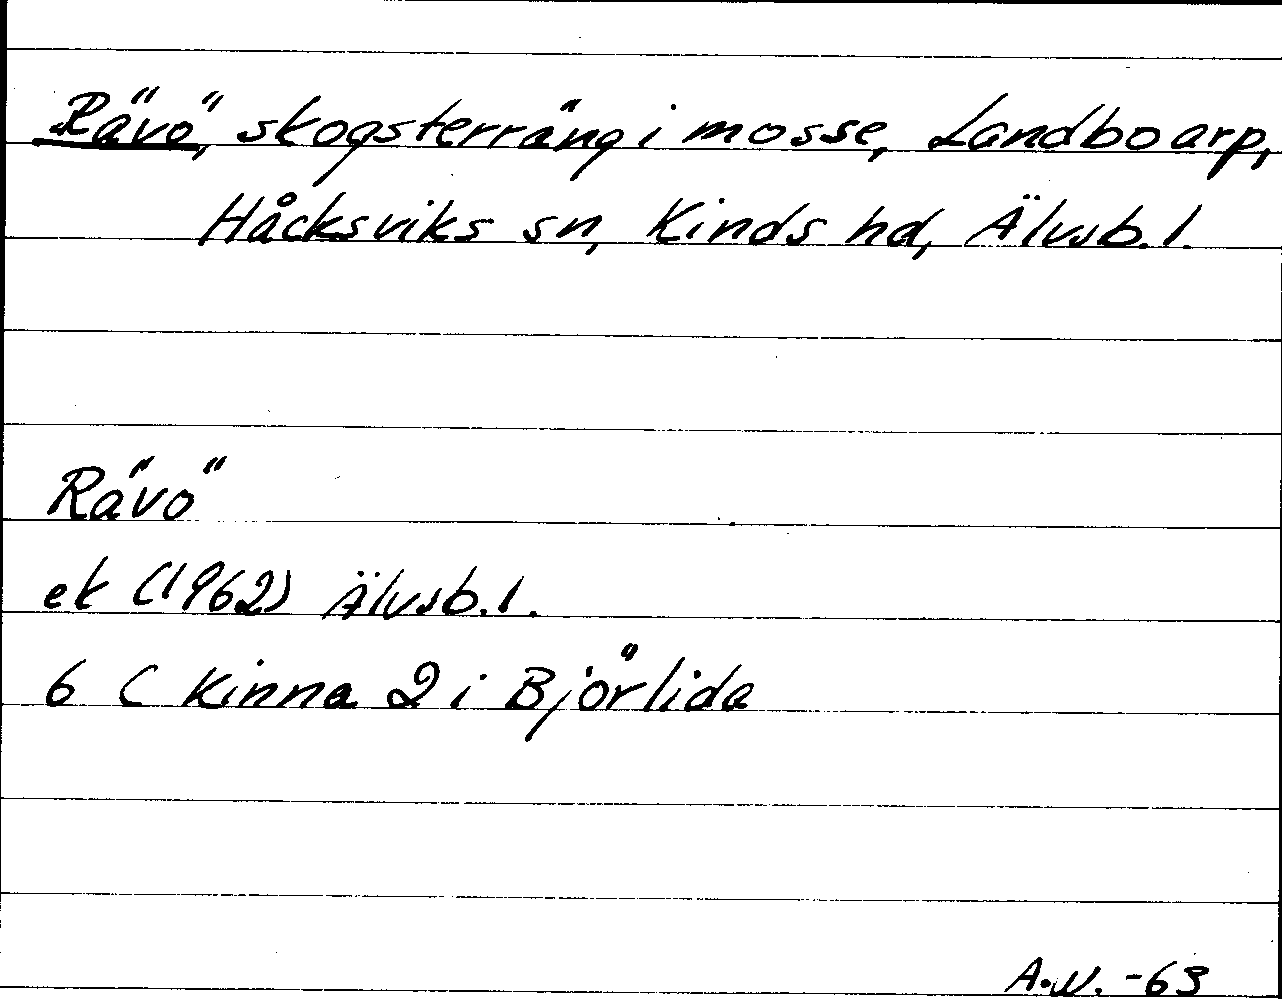 Rävö, skogsterräng i mosse, Landboarp,
Håcksviks sn, Kinds hd, Älvsb. l.
Rävö
ek (1962) Älvsb. l.
6 C Kinna 2 i Björlida
A.W. -63